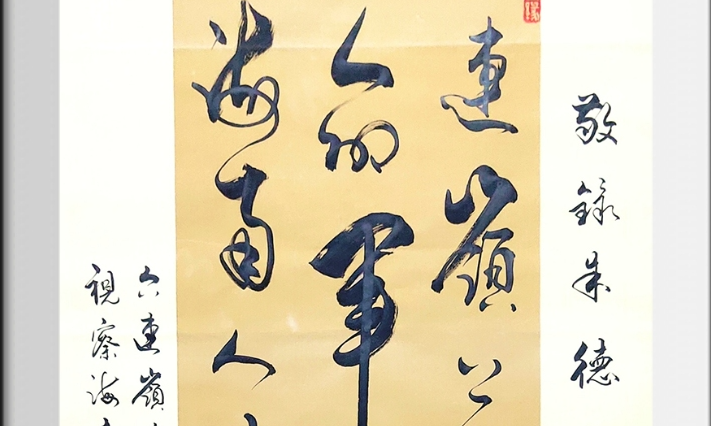 敬錄朱德
連嶺上
命軍
海南人
六連嶺
視察海